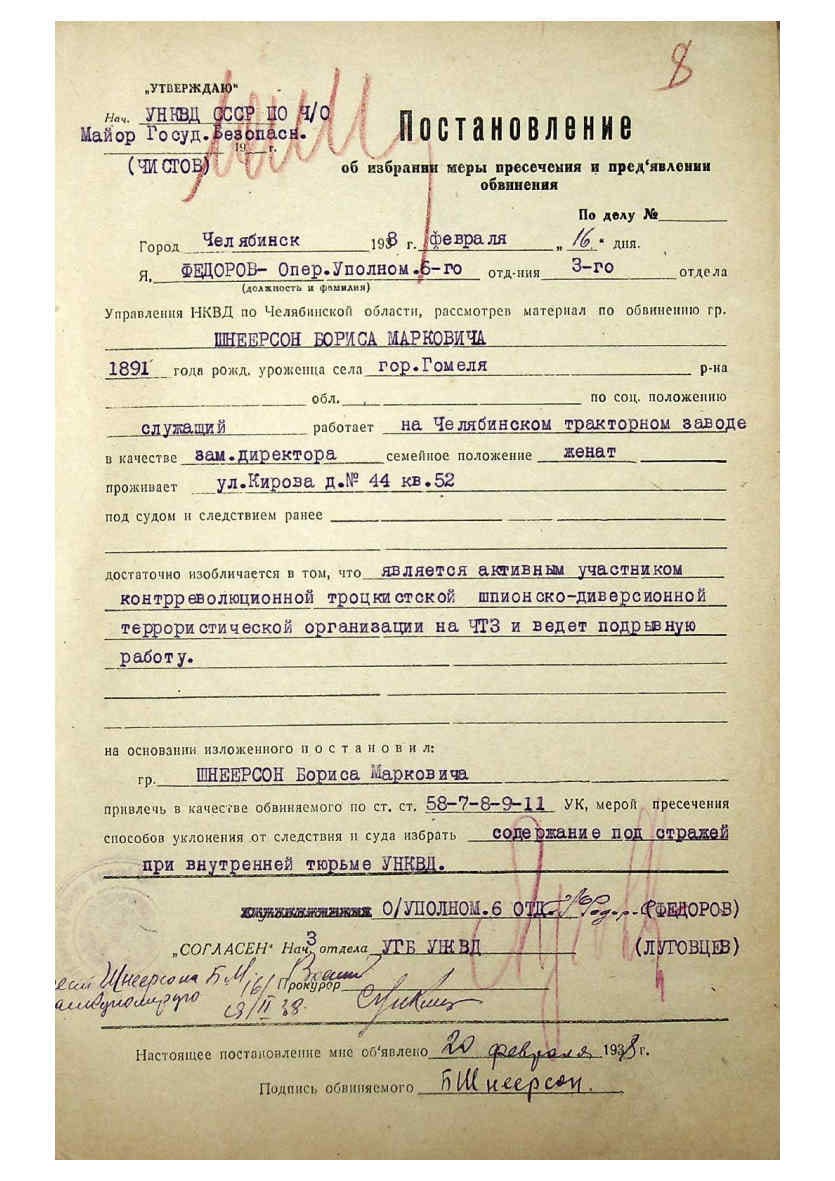 8
„УТВЕРЖДАЮ“
Нач. УНКВД СССР ПО Ч/О
Майор Госуд.Безопасн.
19 г.
(ЧИСТОВ)
Постановление
об избрании меры пресечения и пред‘явлении
обвинения
По делу №
Город Челябинск 1938 г. февраля „ 16 “ дня.
Я, ФЕДОРОВ- Опер.Уполном.6-го отд-ния 3-го отдела
(должность и фамилия)
Управления НКВД по Челябинской области, рассмотрев материал по обвинению гр.
ШНЕЕРСОН БОРИСА МАРКОВИЧА
1891 года рожд. уроженца села гор.Гомеля р-на
обл. по соц. положению
служащий работает на Челябинском тракторном заводе
в качестве зам.директора семейное положение женат
проживает ул.Кирова д.№ 44 кв.52
под судом и следствием ранее
достаточно изобличается в том, что является активным участником
контрреволюционной троцкистской шпионско-диверсионной
террористической организации на ЧТЗ и ведет подрывную
работу.
на основании изложенного постановил:
гр. ШНЕЕРСОН Бориса Марковича
привлечь в качестве обвиняемого по ст. ст. 58-7-8-9-11 УК, мерой пресечения
способов уклонения от следствия и суда избрать содержание под стражей
при внутренней тюрьме УНКВД.
О/УПОЛНОМ.6 ОТД. (ФЕДОРОВ)
„СОГЛАСЕН“ Нач. 3 отдела УГБ УНКВД (ЛУГОВЦЕВ)
Шнеерсона Б.М.
Прокурор
Настоящее постановление мне об‘явлено 20 февраля 1938 г.
Подпись обвиняемого БШнеерсон.